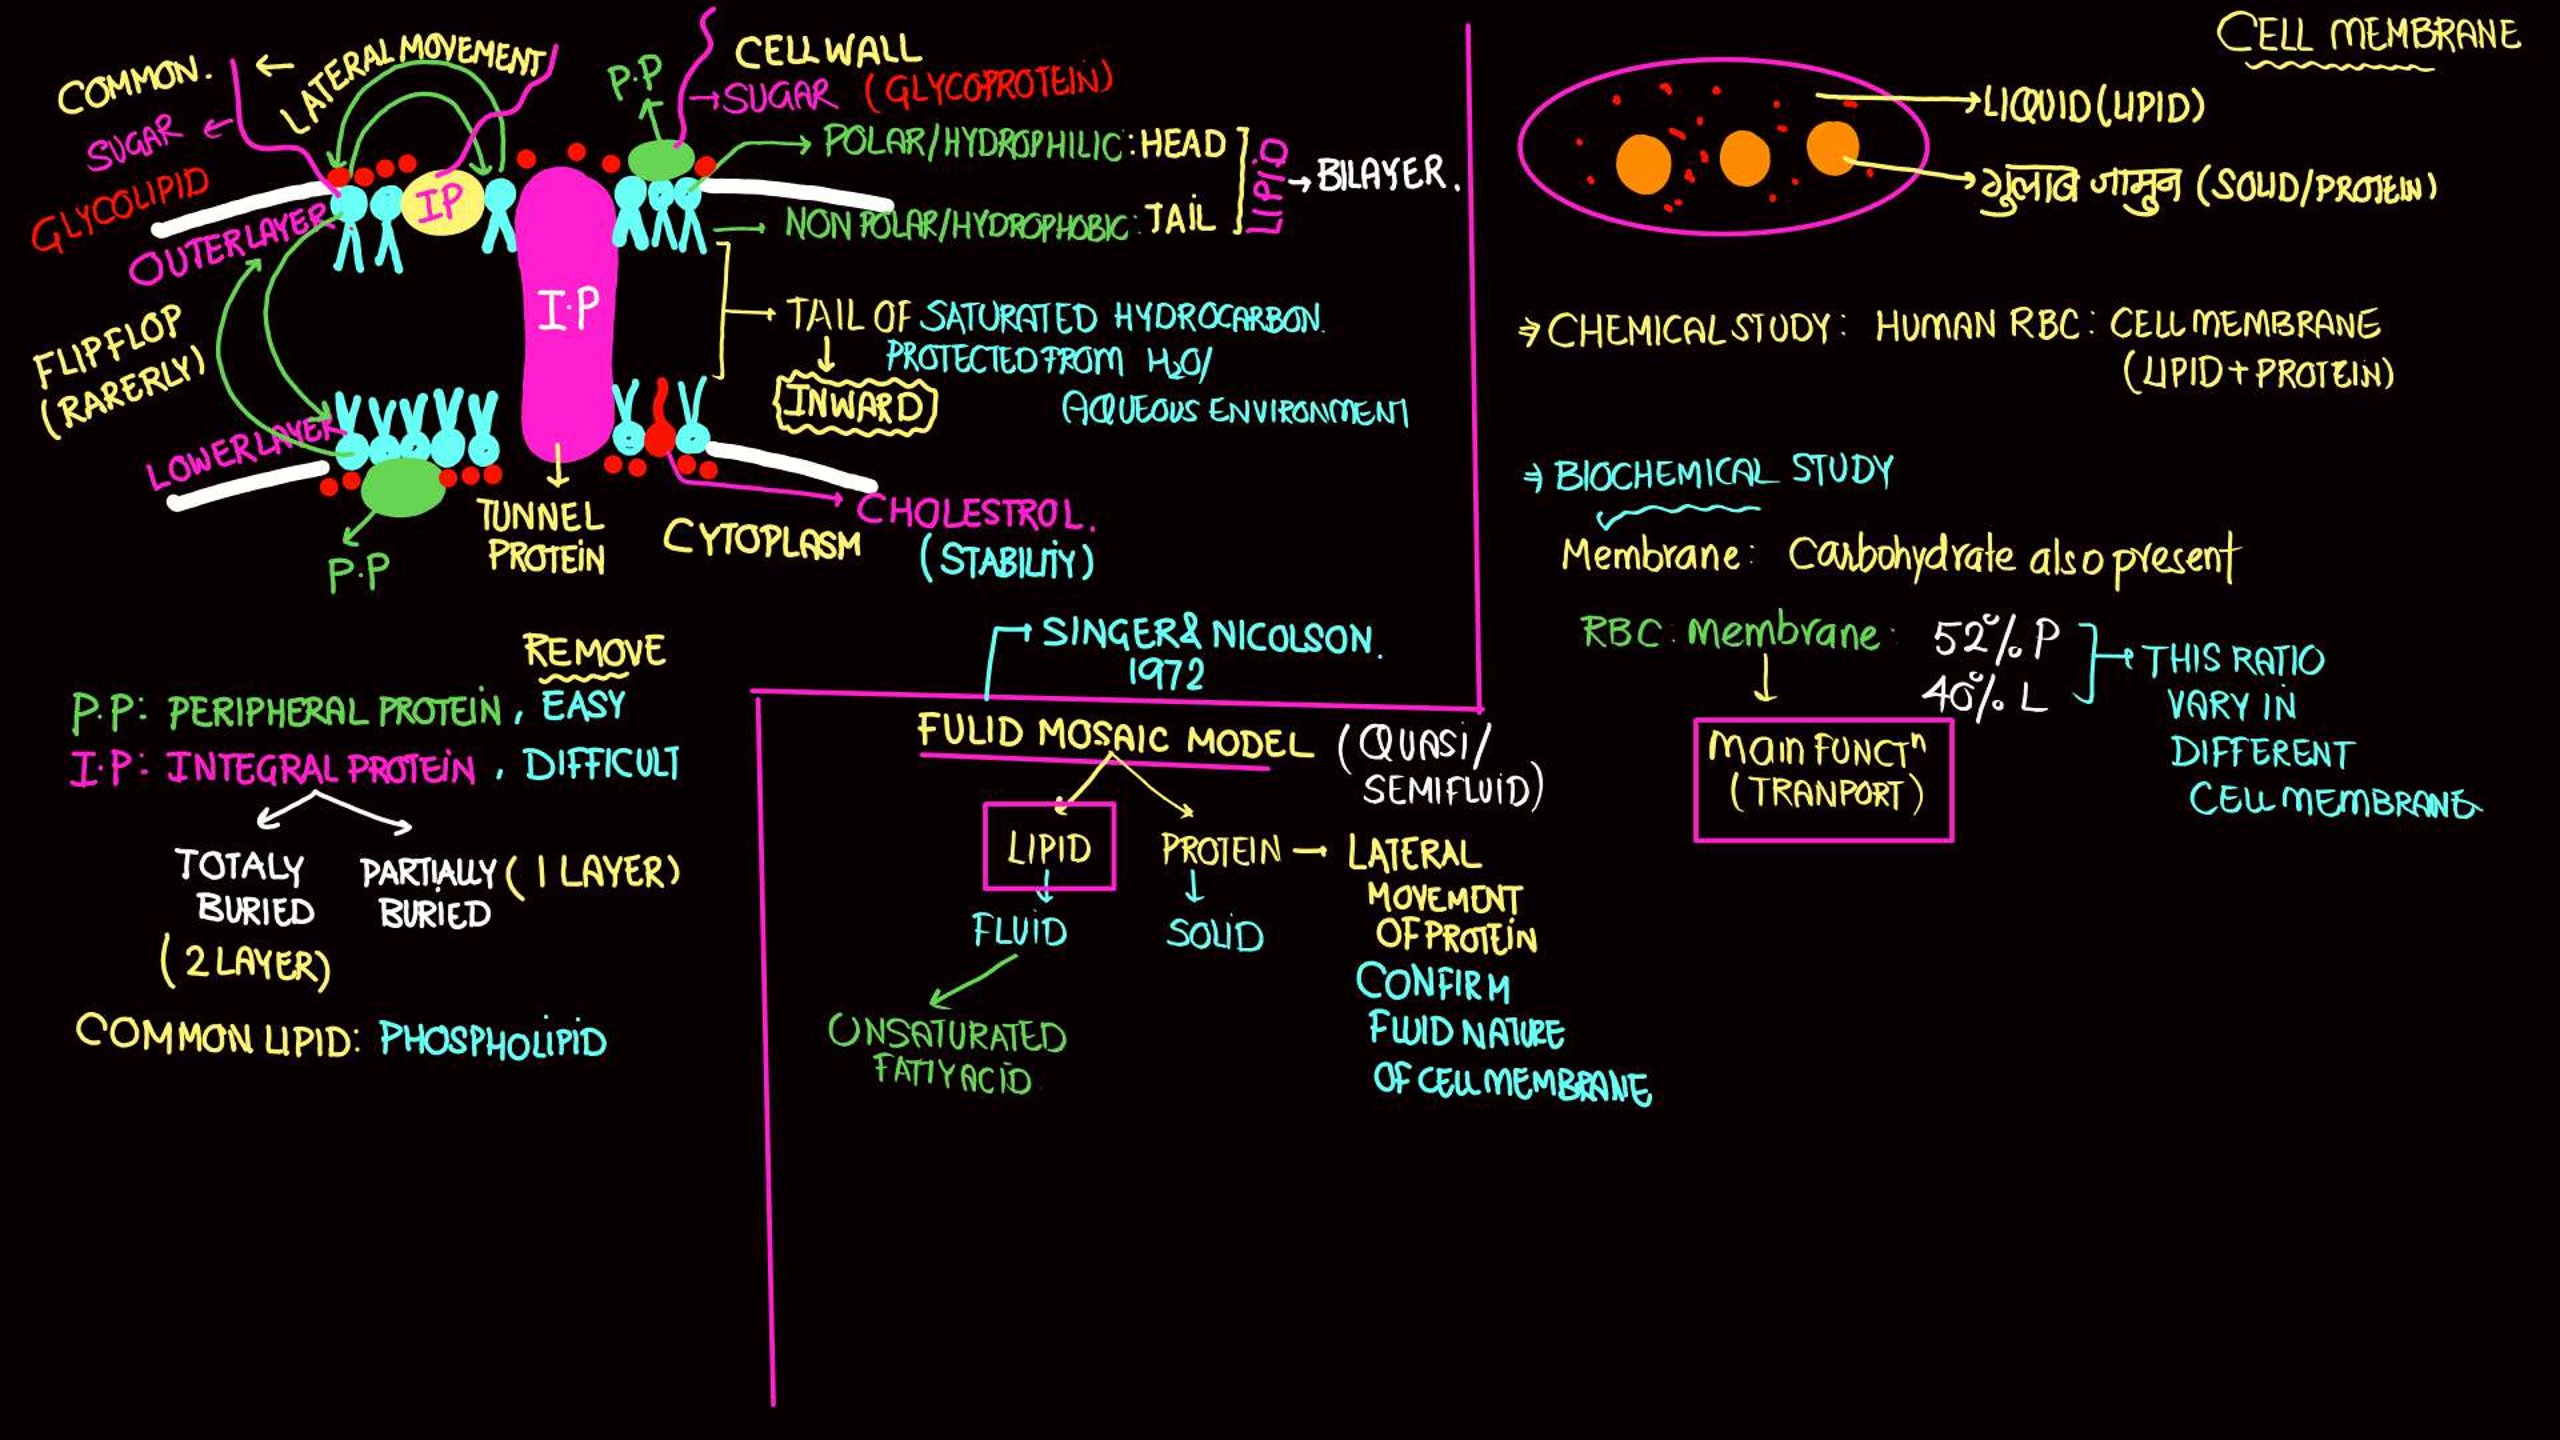 CELL MEMBRANE
COMMON. ← LATERAL MOVEMENT
SUGAR
GLYCOLIPID
OUTERLAYER
FLIPFLOP
(RARERLY)
LOWERLAYER
IP
I.P
P.P
P.P
CELLWALL
→SUGAR (GLYCOPROTEIN)
POLAR/HYDROPHILIC: HEAD
NON POLAR/HYDROPHOBIC: TAIL
LIPID
→ BILAYER.
TAIL OF SATURATED HYDROCARBON.
PROTECTED FROM H₂O/
AQUEOUS ENVIRONMENT
INWARD
TUNNEL
PROTEIN
CYTOPLASM
CHOLESTROL.
(STABILITY)
REMOVE
P.P: PERIPHERAL PROTEIN, EASY
I.P: INTEGRAL PROTEIN, DIFFICULT
TOTALY
BURIED
(2 LAYER)
PARTIALLY (1 LAYER)
BURIED
COMMON LIPID: PHOSPHOLIPID
SINGER & NICOLSON.
1972
FULID MOSAIC MODEL (QUASI/
SEMIFLUID)
LIPID
FLUID
UNSATURATED
FATTYACID
PROTEIN → LATERAL
MOVEMENT
OF PROTEIN
CONFIRM
FLUID NATURE
OF CELL MEMBRANE
SOLID
LIQUID (LIPID)
गुलाब जामुन (SOLID/PROTEIN)
⇒ CHEMICAL STUDY: HUMAN RBC: CELL MEMBRANE
(LIPID + PROTEIN)
⇒ BIOCHEMICAL STUDY
Membrane: Carbohydrate also present
RBC: membrane: 52% P
40% L
THIS RATIO
VARY IN
DIFFERENT
CELL MEMBRANE
Main FUNCTⁿ
(TRANPORT)